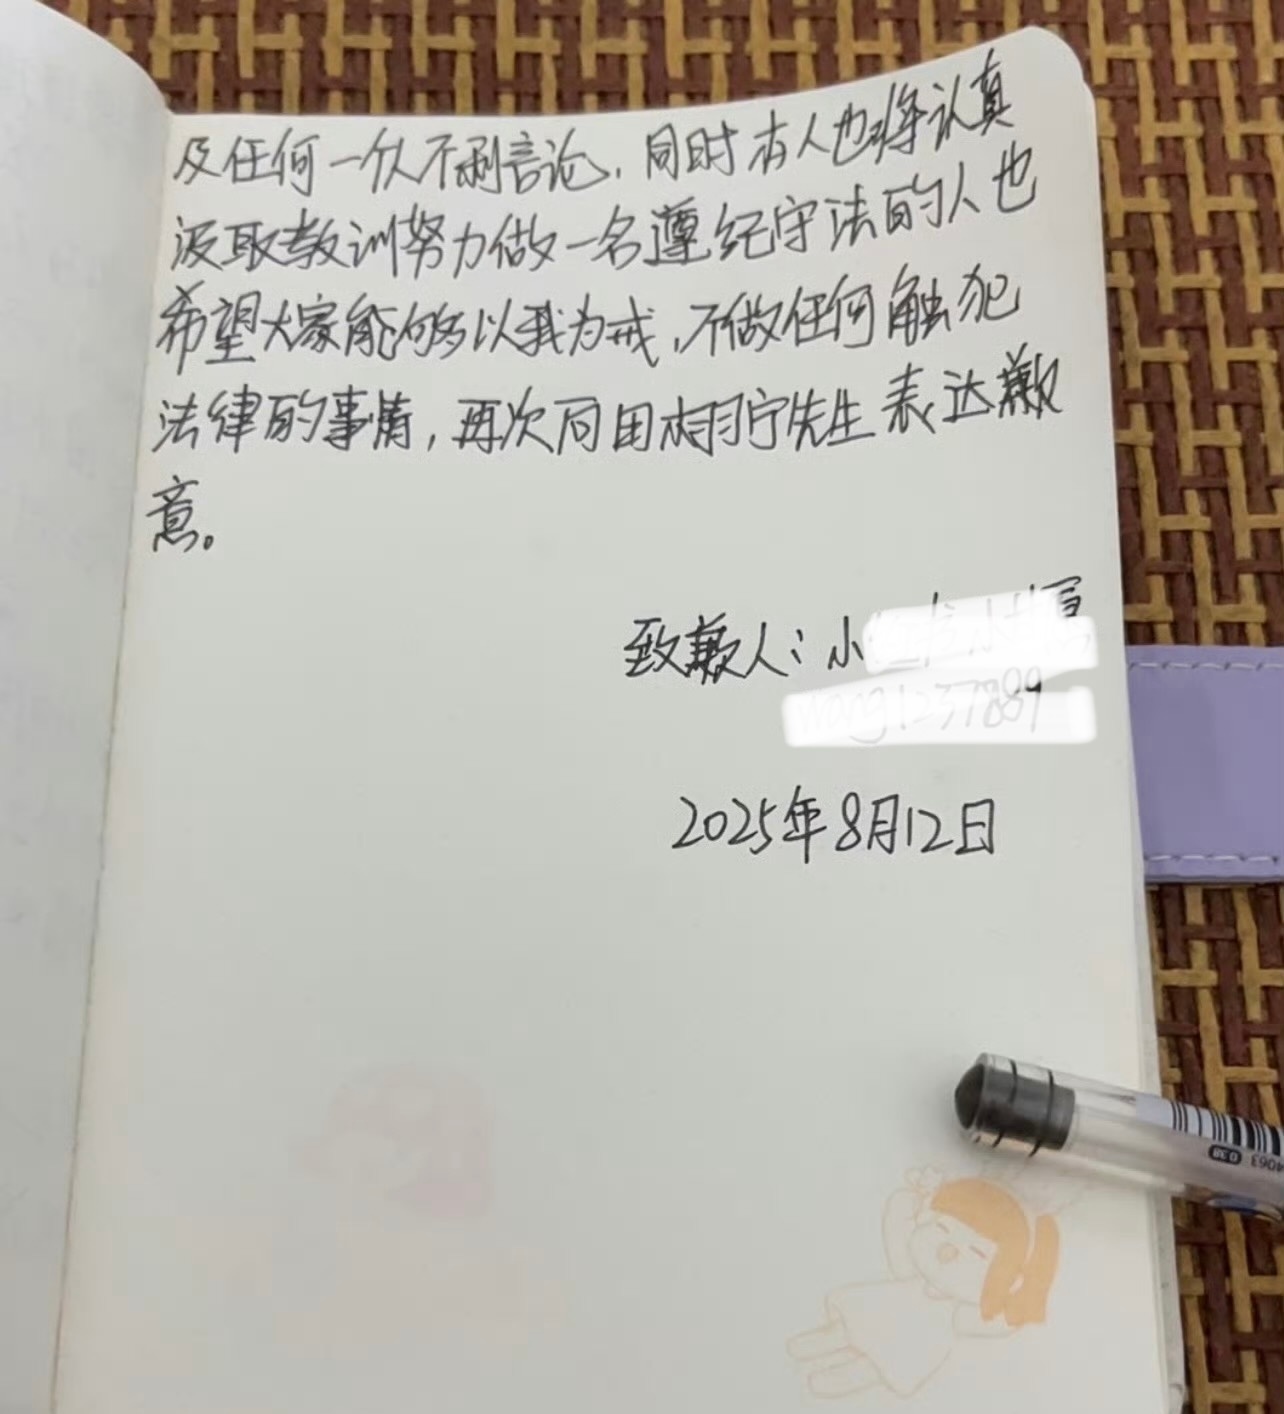 及任何一个人不利言论，同时本人也将认真
汲取教训努力做一名遵纪守法的人也
希望大家能够以我为戒，不做任何触犯
法律的事情，再次向田栩宁先生表达歉
意。
致歉人：小
2025年8月12日
0.38